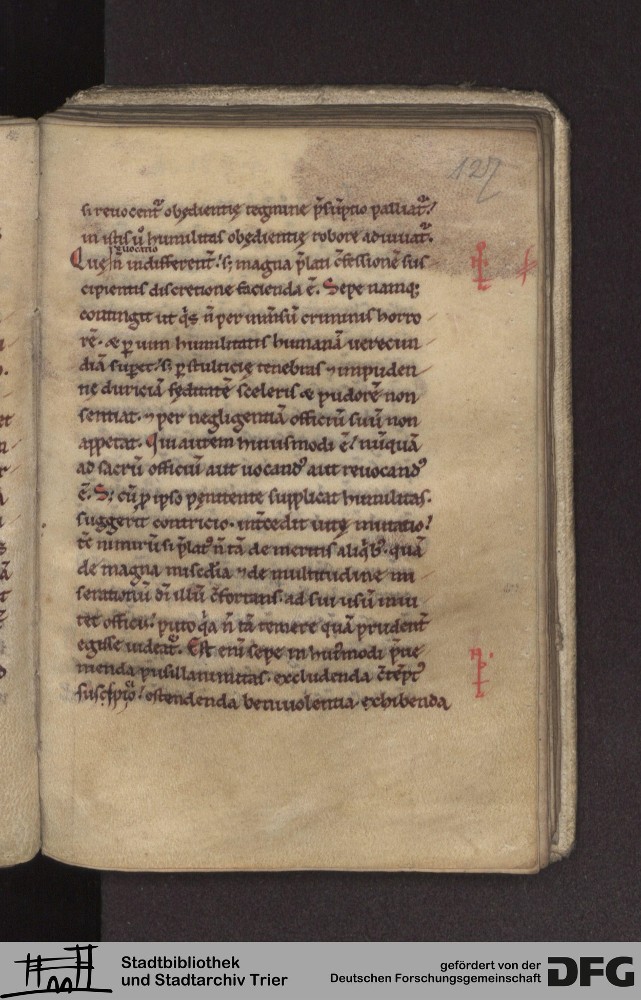 127
si reuocent᷑ obędientię tegmine p̄sūptio palliat᷑.
in istis ũ humilitas obędientię robore adiuuat᷑.
reuocatio
Quę n̄ indifferent᷑. s; magna p̄lati c̄fessionē sus
cipientis discretione facienda ē. Sepe namq;
contingit ut q̇s n̄ per inmsū criminis horro
rē. & ꝑ uim humilitatis humanā uerecun
diā supet. s; p stulticię tenebras ⁊ inpuden
nę duriciā fęditatē sceleris & pudorē non
sentiat. ⁊ per negligentiā officiū suū non
appetat. Qui autem huiusmodi ē. nūquā
ad sacrū officiū aut uocandꝰ aut reuocandꝰ
ē. S; cū ꝓ ipso pęnitente supplicat humilitas.
suggerit contricio. int̄cedit uitę mutatio.
tc̄ nimirū si p̄latꝰ n̄ tā de meritis aliq̇bꝰ. quā
de magna misc̄dia ⁊ de multitudine mi
serationū dī illū c̄fortans. ad sui usū inui
tet officii. puto q̇a n̄ tā temere quā prudent̄
egisse uideat᷑. Est enī sepe in huꝰmodi p̄ue
nienda pusillanimitas. excludenda c̄tēptꝰ
suscꝑtio. ostendenda beniuolentia. exhibenda
Stadtbibliothek
und Stadtarchiv Trier
gefördert von der
Deutschen Forschungsgemeinschaft
DFG